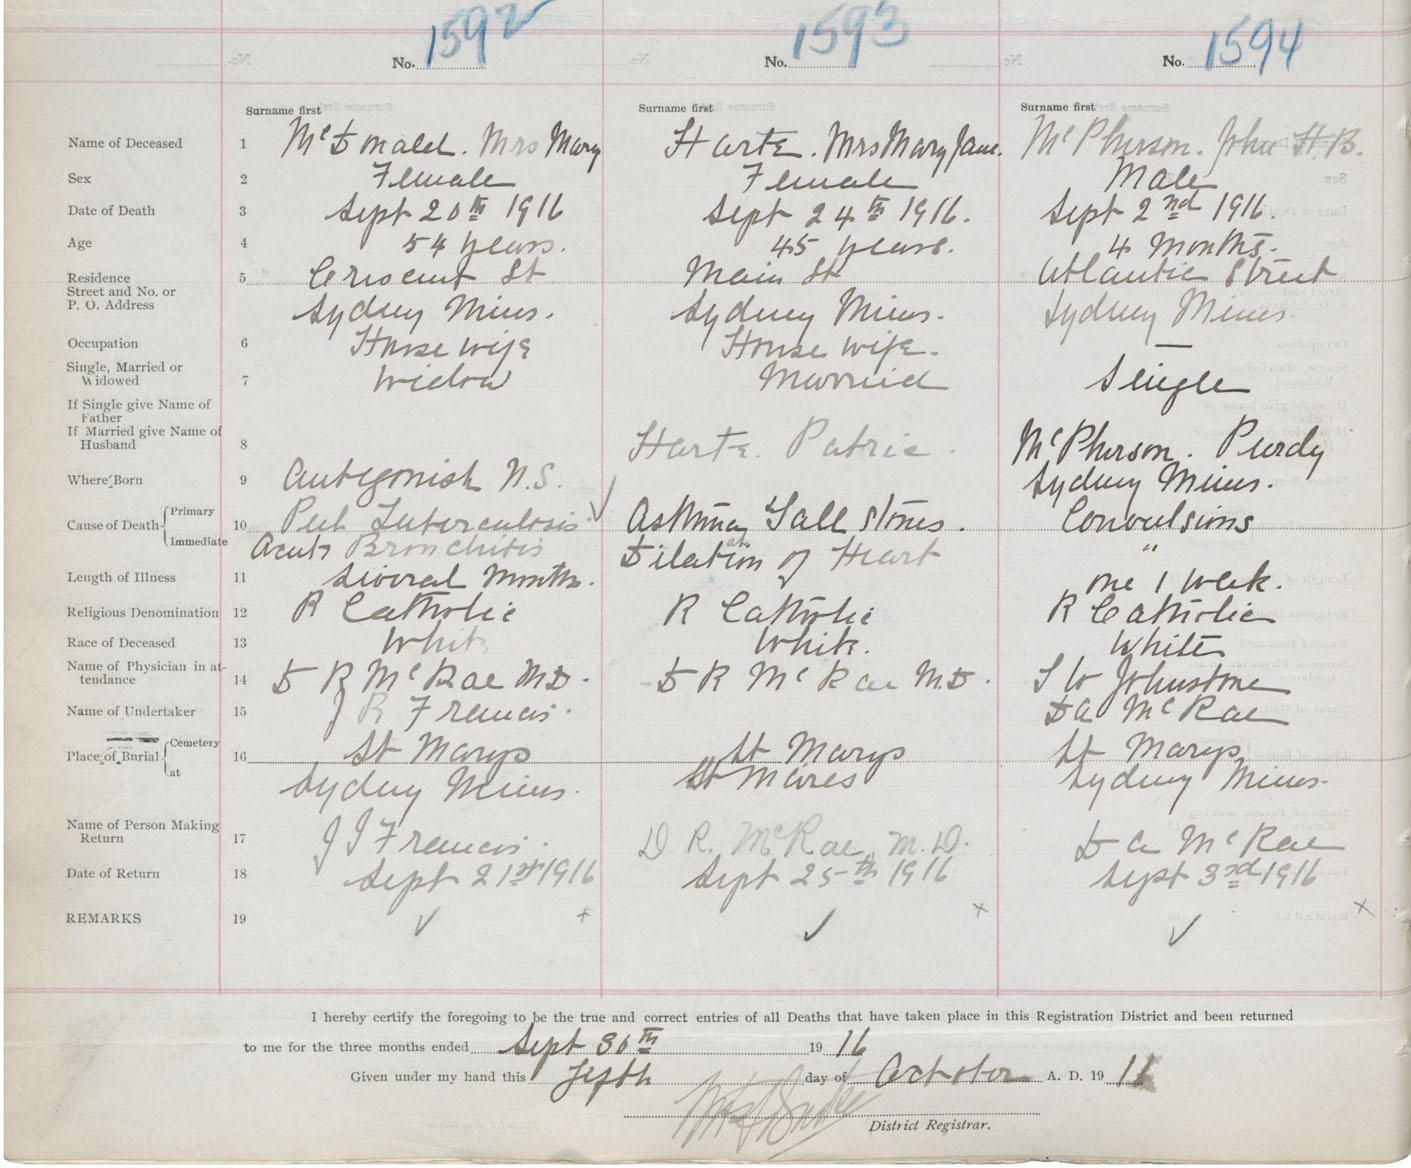 No. 1592 No. 1593 No. 1594
Surname first Surname first Surname first
Name of Deceased 1 McDonald. Mrs Mary Harte. Mrs Mary Jane. McPherson. John H.B.
Sex 2 Female Female Male
Date of Death 3 Sept 20th 1916 Sept 24th 1916. Sept 2nd 1916.
Age 4 54 years. 45 years. 4 months.
Residence 5 Crescent St Main St Atlantic Street
Street and No. or
P. O. Address Sydney Mines. Sydney Mines. Sydney Mines.
Occupation 6 House wife House wife. —
Single, Married or
Widowed 7 Widow Married Single
If Single give Name of
Father
If Married give Name of
Husband 8 Harte. Patric. McPherson. Purdy
Where Born 9 Antigonish N.S. Sydney Mines.
Cause of Death Primary 10 Pul Tuberculosis Asthma Gall stones. Convulsions
Immediate Acute Bronchitis Dilatation of Heart "
Length of Illness 11 Several months. one 1 week.
Religious Denomination 12 R Catholic R Catholic R Catholic
Race of Deceased 13 White White. White
Name of Physician in at-
tendance 14 D R McRae MD. D R McRae M.D. T W Johnstone
Name of Undertaker 15 J R Francis. D A McRae
Place of Burial Cemetery 16 St Marys St Marys St Marys
at Sydney Mines. St Maries Sydney Mines.
Name of Person Making
Return 17 J J Francis. D. R. McRae, M.D. D A McRae
Date of Return 18 Sept 21st 1916 Sept 25th 1916 Sept 3rd 1916
REMARKS 19 ✓ x ✓ x ✓ x
I hereby certify the foregoing to be the true and correct entries of all Deaths that have taken place in this Registration District and been returned
to me for the three months ended Sept 30th 1916
Given under my hand this day of October A. D. 1916
District Registrar.